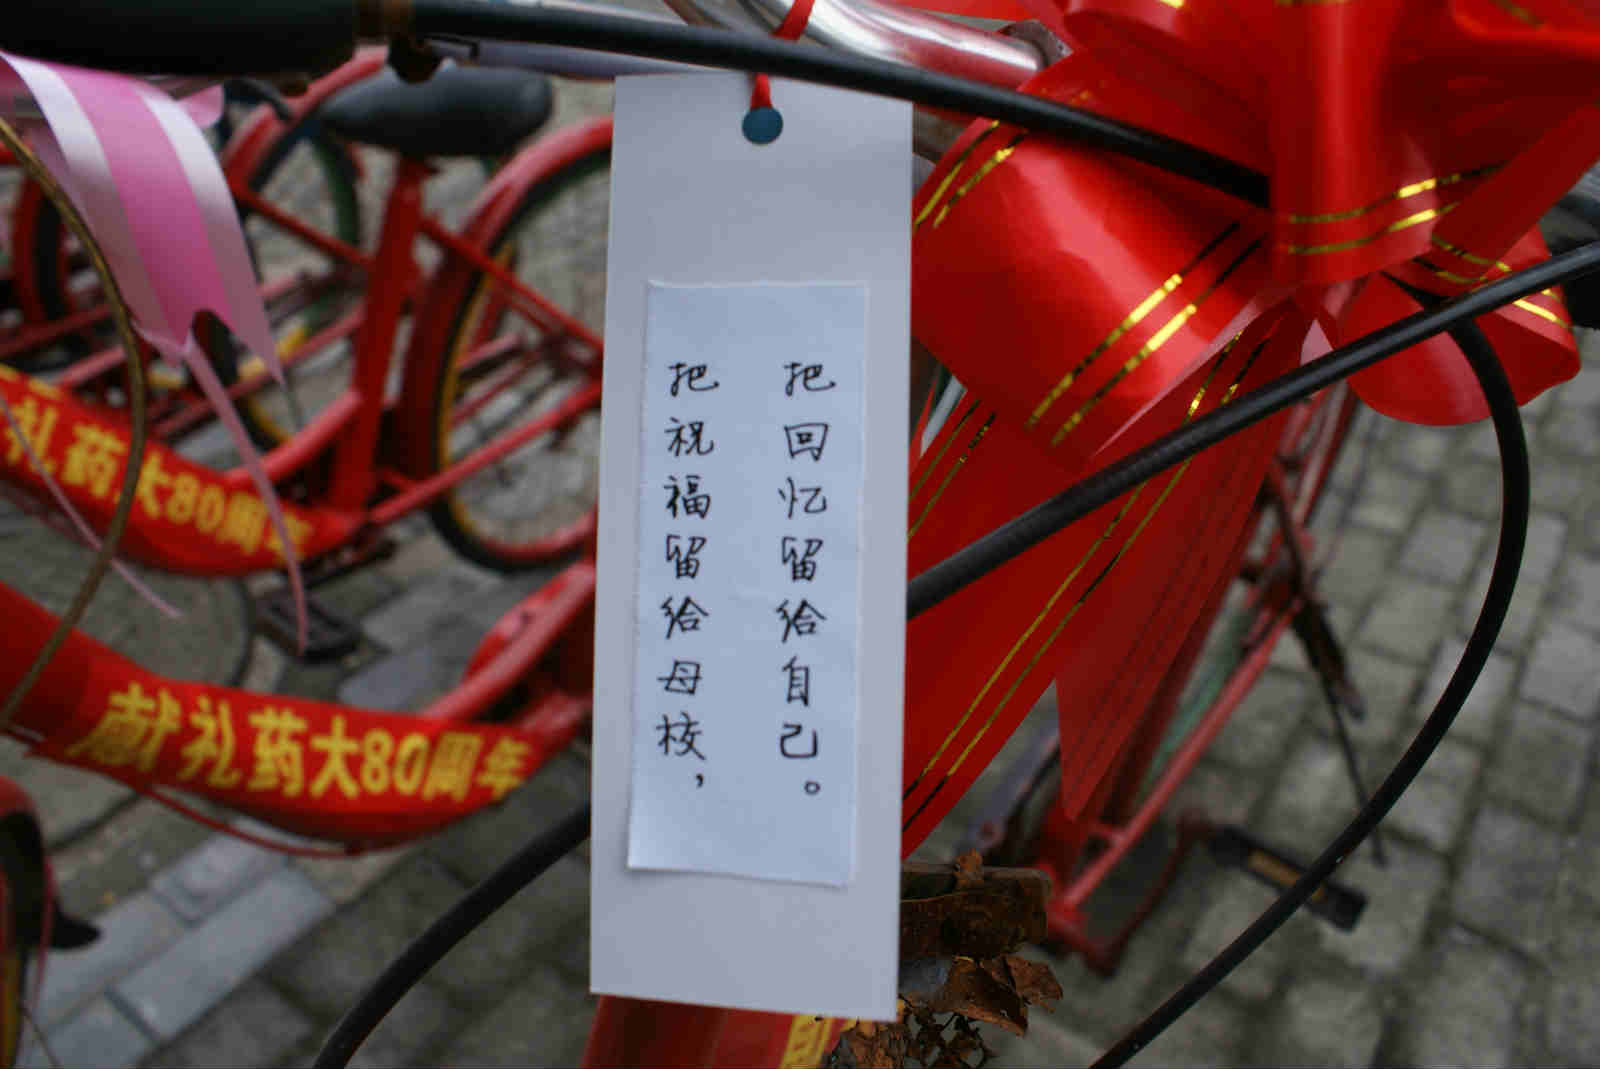 把祝福留给母校，
把回忆留给自己。
礼药大80周年
献礼药大80周年